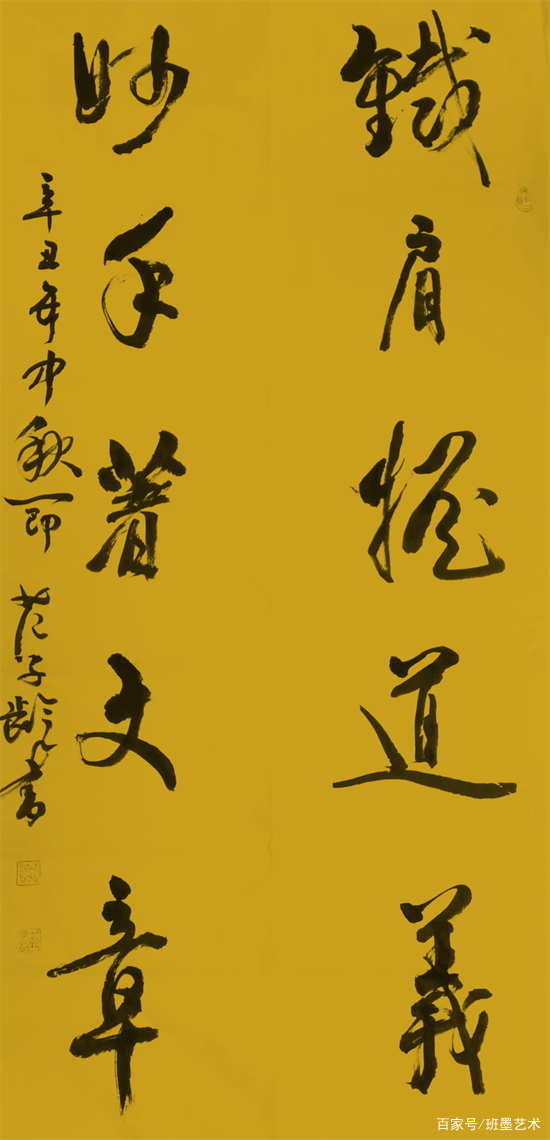 鐵肩擔道義
妙手著文章
辛丑年中秋節 范子齡書
百家号/班墨艺术